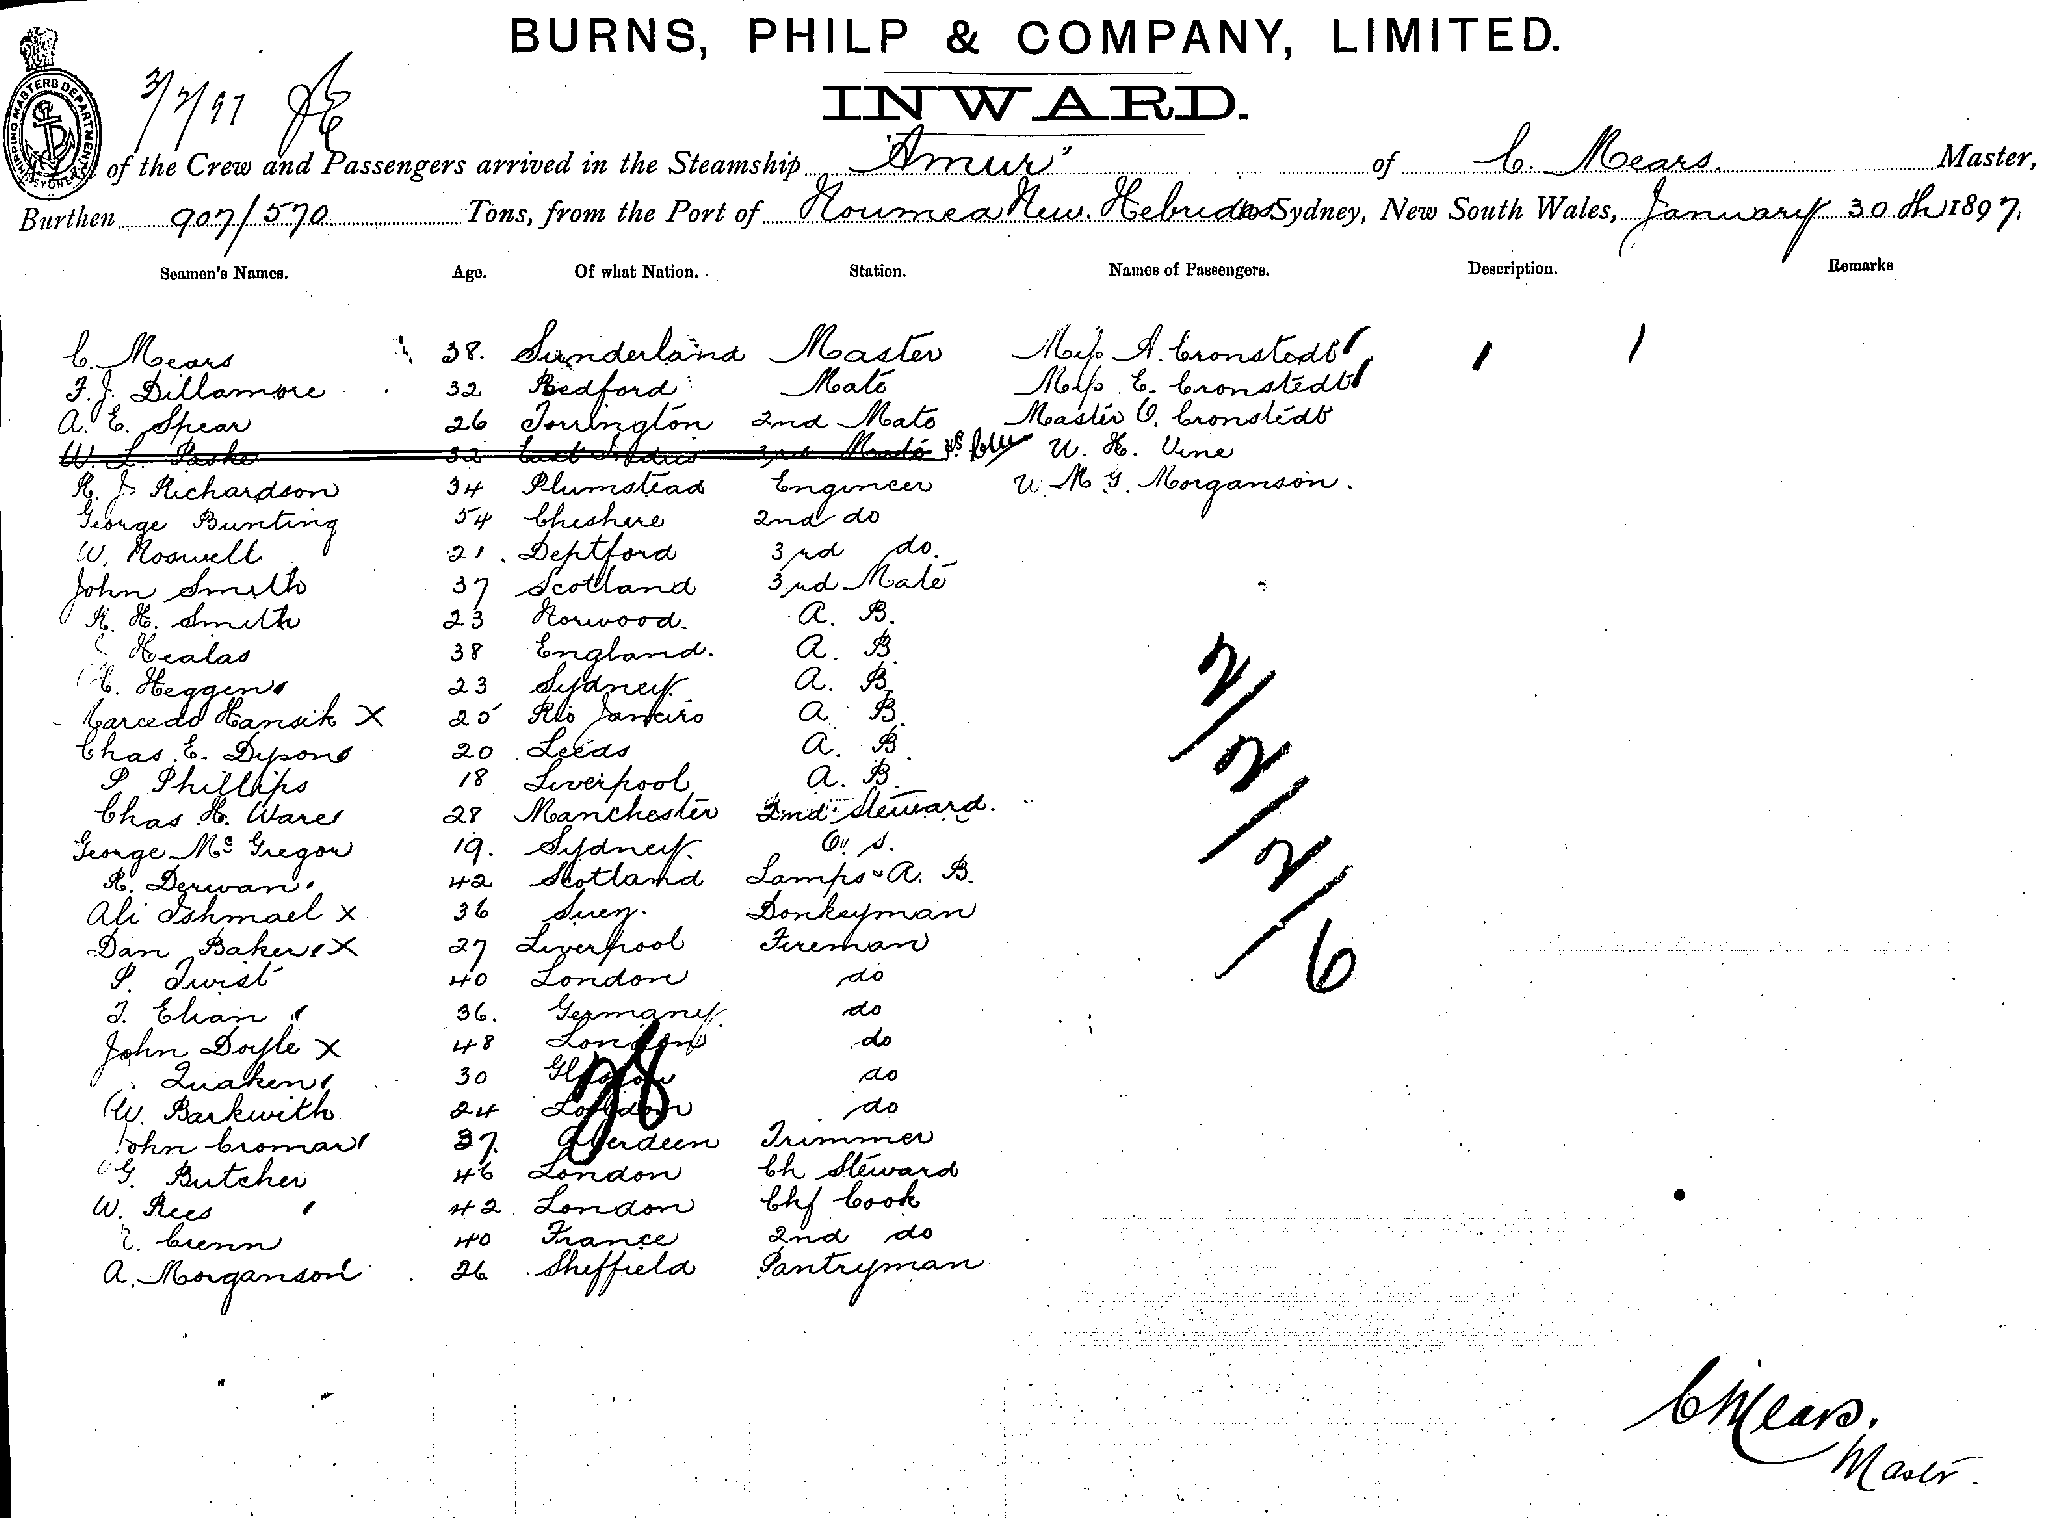 BURNS, PHILP & COMPANY, LIMITED.
INWARD.
3/2/97
of the Crew and Passengers arrived in the Steamship "Amur" of C. Mears. Master,
Burthen 907/570 Tons, from the Port of Noumea New Hebrides to Sydney, New South Wales, January 30th 1897.
Seamen's Names. Age. Of what Nation. Station. Names of Passengers. Description. Remarks
C. Mears 38. Sunderland Master Miss A. Cronstedt
F. J. Dillamore 32 Bedford Mate Miss E. Cronstedt
A. E. Spear 26 Torrington 2nd Mate Master O. Cronstedt
W. L. Paske 32 East Indies 3rd Mate W. H. Vine
R. J. Richardson 34 Plumstead Engineer W. M. G. Morganson.
George Bunting 54 Cheshire 2nd do
W. Roswell 21. Deptford 3rd do.
John Smith 37 Scotland 3rd Mate
R. H. Smith 23 Norwood. A. B.
Healas 38 England. A. B.
C. Heggen 23 Sydney. A. B.
Hansik X 25 Rio Janeiro A. B.
Chas. E. Dyson 20 Leeds A. B.
P Phillips 18 Liverpool A. B.
Chas H. Ware 28 Manchester 2nd Steward.
George Mc Gregor 19. Sydney. O. S.
R. Derwan 42 Scotland Lamps & A. B.
Ali Ishmael X 36 Suez. Donkeyman
Dan Baker X 27 Liverpool Fireman
P. Twist 40 London do
J. Elian 36. Germany. do
John Doyle X 48 London do
Quaken 30 Glasgow do
W. Barkwith 24 London do
John Cromar 37. Aberdeen Trimmer
G. Butcher 46 London Ch Steward
W. Rees 42 London Chf Cook
Crenn 40 France 2nd do
A. Morganson 26 Sheffield Pantryman
2/2/2/6
28
C Mears.
Master.